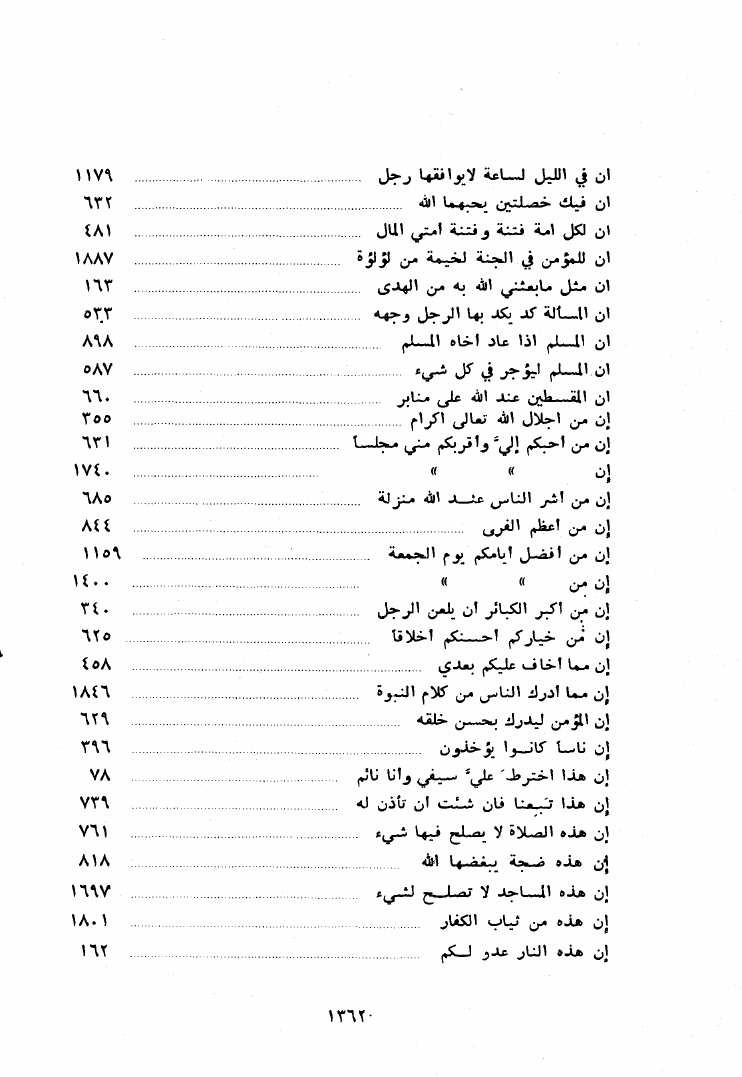 ان في الليل لساعة لايوافقها رجل ........ ١١٧٩
ان فيك خصلتين يحبهما الله ........ ٦٣٢
ان لكل امة فتنة وفتنة أمتي المال ........ ٤٨١
ان للمؤمن في الجنة لخيمة من لؤلؤة ........ ١٨٨٧
ان مثل مابعثني الله به من الهدى ........ ١٦٣
ان المسألة كد يكد بها الرجل وجهه ........ ٥٣٣
ان المسلم اذا عاد أخاه المسلم ........ ٨٩٨
ان المسلم ليؤجر في كل شيء ........ ٥٨٧
ان المقسطين عند الله على منابر ........ ٦٦٠
إن من اجلال الله تعالى اكرام ........ ٣٥٥
إن من أحبكم إليَّ وأقربكم مني مجلساً ........ ٦٣١
إن » » ........ ١٧٤٠
إن من أشر الناس عند الله منزلة ........ ٦٨٥
إن من أعظم الفرى ........ ٨٤٤
إن من أفضل أيامكم يوم الجمعة ........ ١١٥٩
إن من » » ........ ١٤٠٠
إن من أكبر الكبائر أن يلعن الرجل ........ ٣٤٠
إن من خياركم أحسنكم أخلاقاً ........ ٦٢٥
إن مما أخاف عليكم بعدي ........ ٤٥٨
إن مما أدرك الناس من كلام النبوة ........ ١٨٤٦
إن المؤمن ليدرك بحسن خلقه ........ ٦٢٩
إن ناساً كانوا يؤخذون ........ ٣٩٦
إن هذا اخترطَ عليَّ سيفي وأنا نائم ........ ٧٨
إن هذا تبعنا فان شئت أن تأذن له ........ ٧٣٩
إن هذه الصلاة لا يصلح فيها شيء ........ ٧٦١
إن هذه ضجة يبغضها الله ........ ٨١٨
إن هذه المساجد لا تصلح لشيء ........ ١٦٩٧
إن هذه من ثياب الكفار ........ ١٨٠١
إن هذه النار عدو لكم ........ ١٦٢
١٣٦٢٠